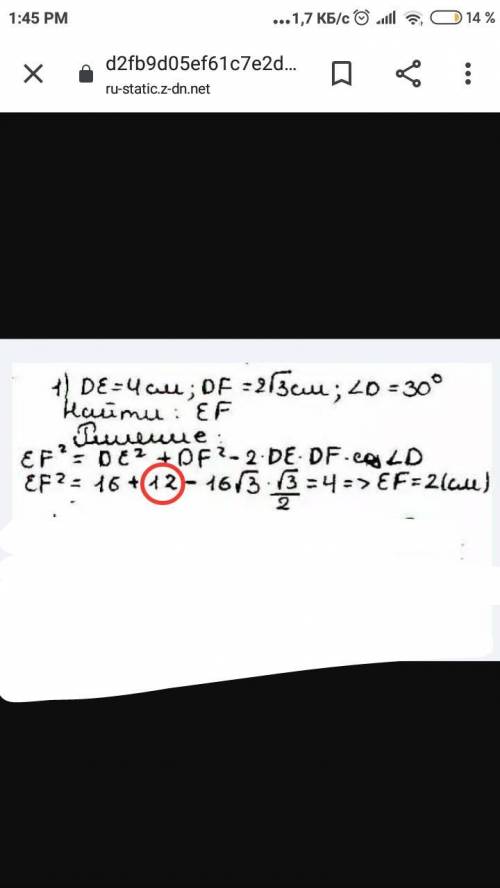 1:45 PM ...1,7 КБ/с 14 %
d2fb9d05ef61c7e2d...
ru-static.z-dn.net
1) DE=4см; DF=2√3см; ∠D=30°
Найти: EF
Решение:
EF²= DE² + DF²-2·DE·DF·cos∠D
EF²= 16 + 12 - 16√3·√3/2=4=> EF=2(см)